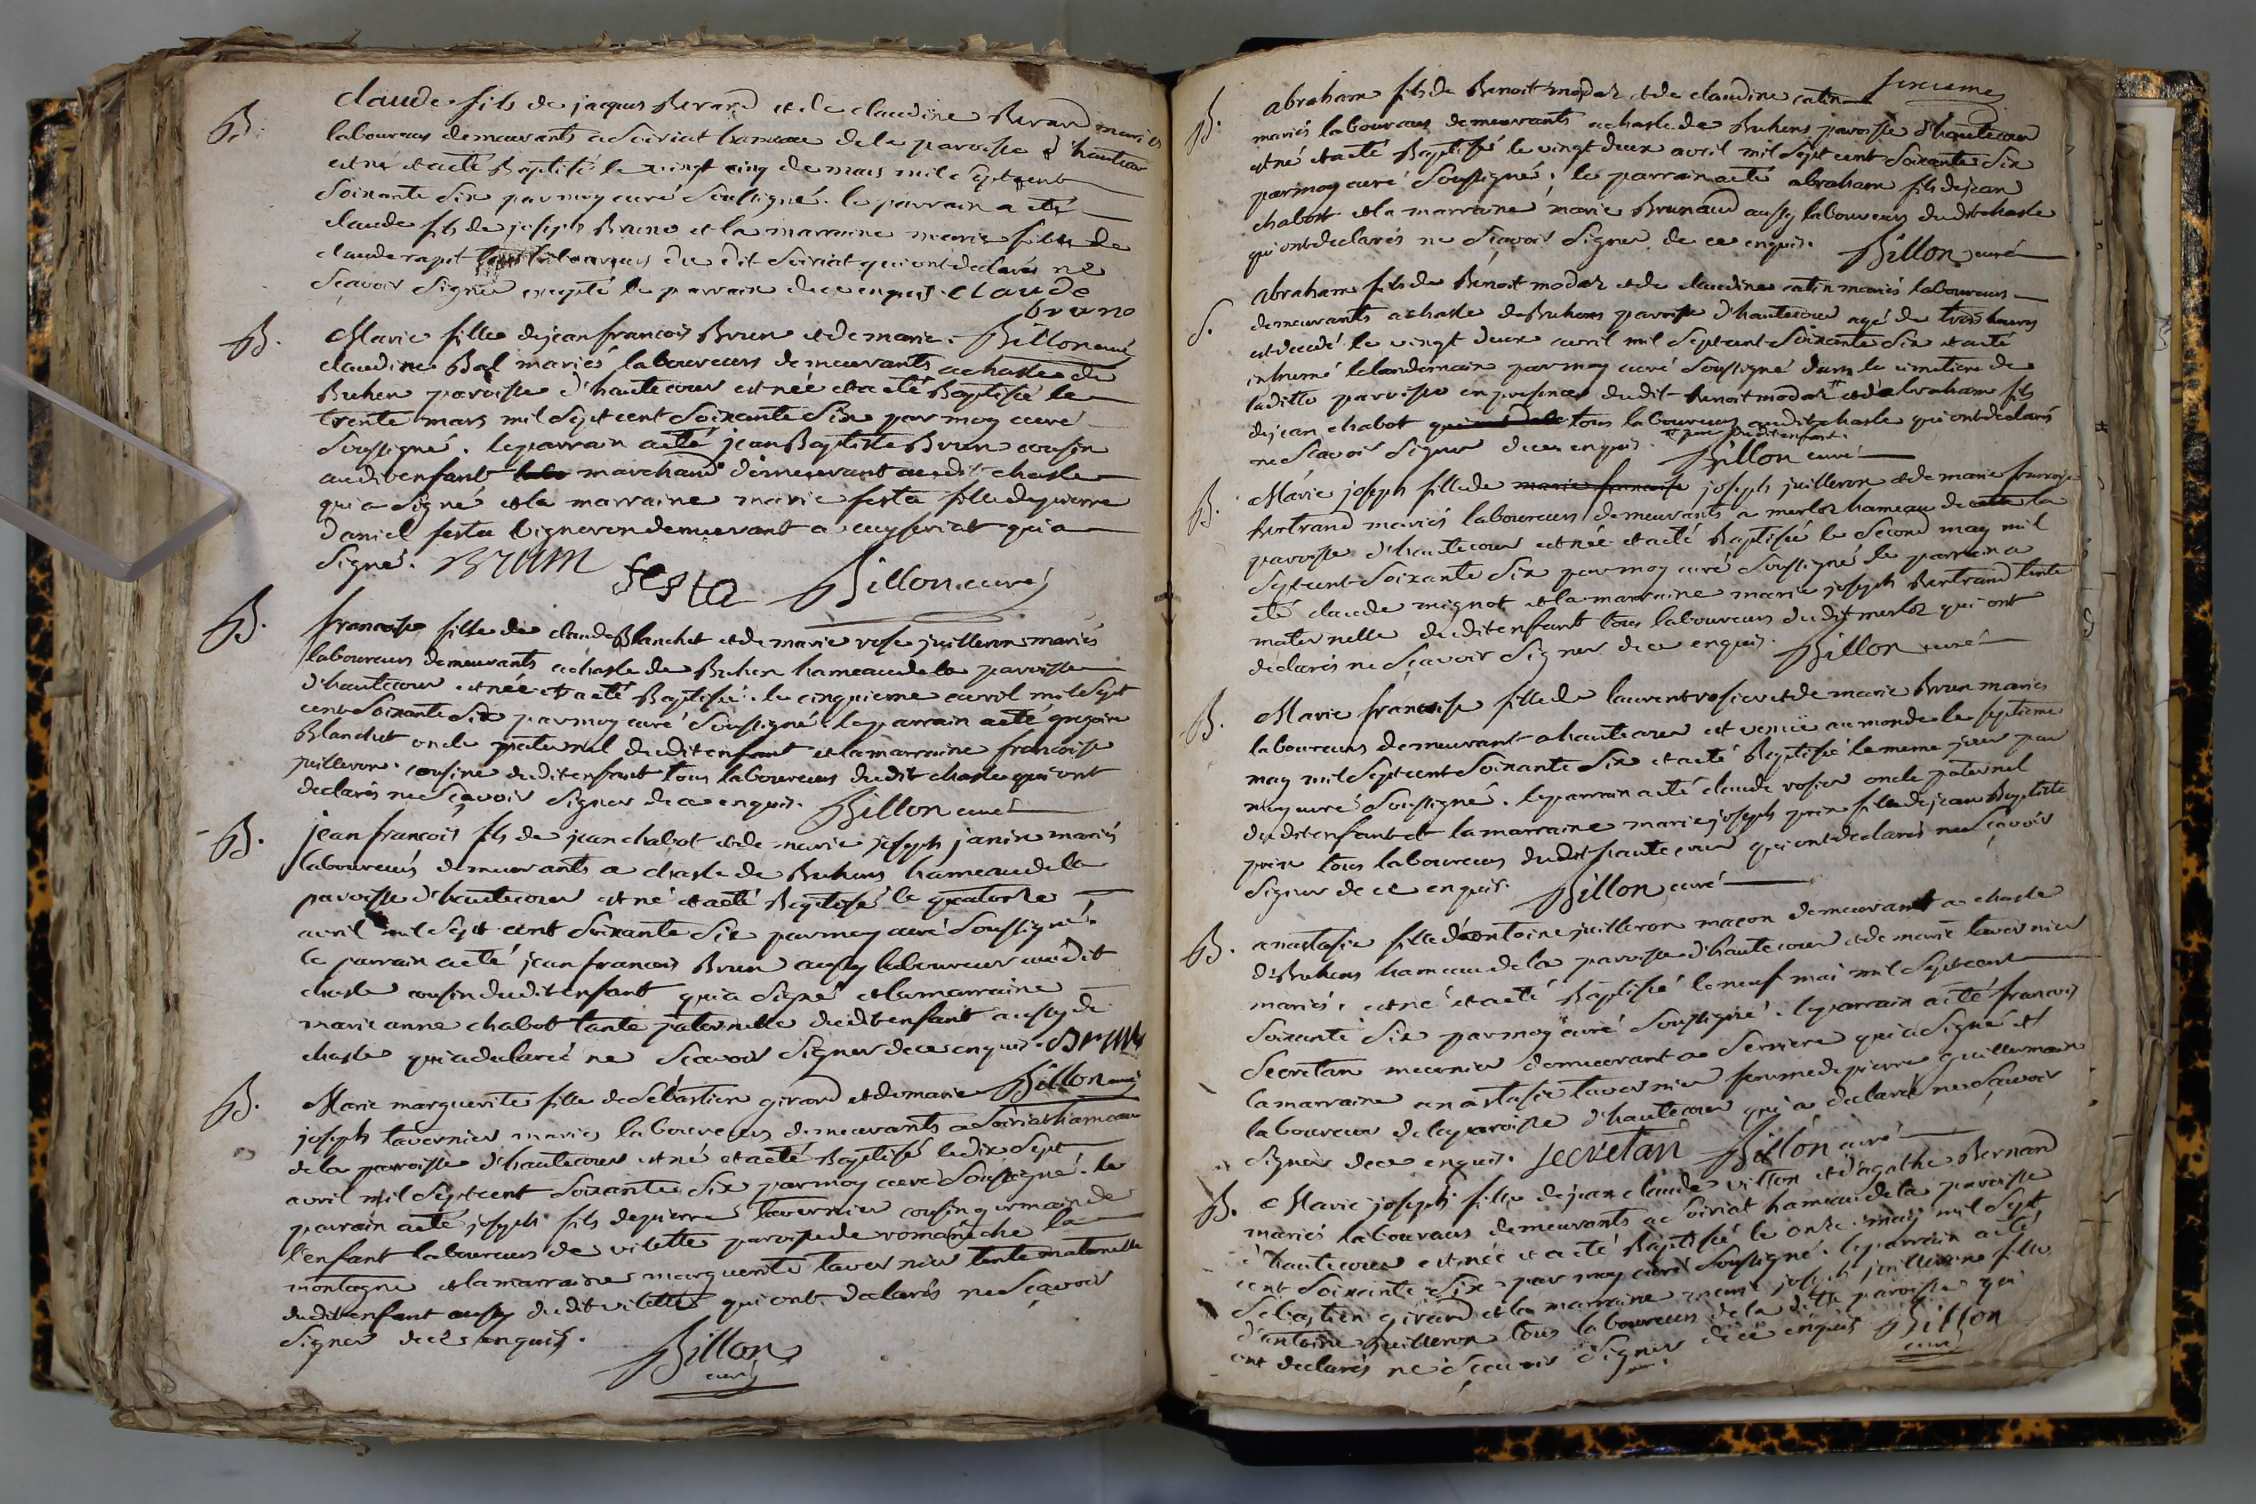 B. claude fils de jacques Berard et de claudine Berard mariés
laboureurs demeurants a Soiriat hameau de la paroisse d'hautecour
est né et a eté Baptisé le vingt cinq de mars mil Sept cent
Soixante Six par moy curé Soussigné. le parrain a eté
claude fils de joseph Bruno et la marraine marie fille de
claude rapet laboureurs du dit Soiriat qui ont declarés ne
Sçavoir Signer excepté le parrain de ce enquis. claude
bruno
B. Marie fille de jean francois Brun et de marie Billon curé
claudine Bal mariés laboureurs demeurants a chasle de
Buhen paroisse d'hautecour est née et a eté Baptisée le
trente mars mil Sept cent Soixante Six par moy curé
Soussigné. le parrain a eté jean Baptiste Brun cousin
audit enfant marchand demeurant audit chasle
qui a Signé et la marraine marie festa fille de pierre
daniel festa vigneron demeurant a ceyseriat qui a
Signé. Brun festa Billon curé
B. francoise fille de claude Blanchet et de marie rose juilleron mariés
laboureurs demeurants a chasle de Buhen hameau de la paroisse
d'hautecour est née et a eté Baptisée le cinquieme avril mil Sept
cent Soixante Six par moy curé Soussigné le parrain a eté gregoire
Blanchet oncle paternel dudit enfant et la marraine francoise
juilleron cousine dudit enfant tous laboureurs dudit chasle qui ont
declarés ne Sçavoir Signer de ce enquis. Billon curé
B. jean francois fils de jean chabot et de marie joseph janin mariés
laboureurs demeurants a chasle de Buhens hameau de la
paroisse d'hautecour est né et a eté Baptisé le quatorze
avril mil Sept cent Soixante Six par moy curé Soussigné.
le parrain a eté jean francois Brun aussy laboureur audit
chasle cousin dudit enfant qui a Signé et la marraine
marie anne chabot tante paternelle dudit enfant aussy de
chasle qui a declaré ne Scavoir Signer de ce enquis. Brun
B. Marie marguerite fille de Sebastien girard et de marie Billon curé
joseph tavernier mariés laboureurs demeurants a Soiriat hameau
de la paroisse d'hautecour est né et a eté Baptisé le dix Sept
avril mil Sept cent Soixante Six par moy curé Soussigné. le
parrain a eté joseph fils de pierre tavernier cousin germain de
l'enfant laboureurs de vilette paroisse de romaneche la
montagne et la marraine marguerite tavernier tante maternelle
dudit enfant aussy dudit vilette qui ont declarés ne Sçavoir
Signer de ce enquis.
Billon
curé
Sixieme
B. abraham fils de Benoit modaz et de claudine catin
mariés laboureurs demeurants a chasle de Buhens paroisse d'hautecour
est né et a eté Baptisé le vingt deux avril mil Sept cent Soixante Six
par moy curé Soussigné. le parrain a eté abraham fils de jean
chabot et la marraine marie Brunaud aussy laboureurs dudit chasle
qui ont declarés ne Sçavoir Signer de ce enquis. Billon curé
S. abraham fils de Benoit modaz et de claudine catin mariés laboureurs
demeurants a chasle de Buhens paroisse d'hautecour agé de trois heures
est decedé le vingt deux avril mil Sept cent Soixante Six et a eté
inhumé le landemain par moy curé Soussigné dans le cimetiere de
laditte paroisse en presence dudit benoit modaz et d'abraham fils
de jean chabot tous laboureurs audit chasle qui ont declarés
ne Sçavoir Signer de ce enquis. pere dudit enfant. Billon curé
B. Marie joseph fille de marie francoise joseph juilleron et de marie francoise
Bertrand mariés laboureurs demeurants a merloz hameau de la
paroisse d'hautecour est née et a eté Baptisée le Second may mil
Sept cent Soixante Six par moy curé Soussigné le parrain a
eté claude mignot et la marraine marie joseph Bertrand tante
maternelle dudit enfant tous laboureurs dudit merloz qui ont
declarés ne Sçavoir Signer de ce enquis. Billon curé
B. Marie francoise fille de laurent rosier et de marie Brun mariés
laboureurs demeurant a hautecour est venüe au monde le Septieme
may mil Sept cent Soixante Six et a eté Baptisée le meme jour par
moy curé Soussigné. le parrain a eté claude rosier oncle paternel
dudit enfant et la marraine marie joseph fille de jean Baptiste
tous laboureurs dudit hautecour qui ont declarés ne Sçavoir
Signer de ce enquis. Billon curé
B. anastasie fille d'antoine juilleron maçon demeurant a chasle
de Buhens hameau de la paroisse d'hautecour et de marie tavernier
mariés. est né et a eté Baptisée le neuf mai mil Sept cent
Soixante Six par moy curé Soussigné. le parrain a eté francois
Secretan meunier demeurant a Serriere qui a Signé et
la marraine anastasie tavernier femme de pierre guillermain
laboureur de la paroisse d'hautecour qui a declaré ne Sçavoir
Signer de ce enquis. secretan Billon curé
B. Marie joseph fille de jean claude vilton et d'agathe Bernard
mariés laboureurs demeurants a Soiriat hameau de la paroisse
d'hautecour est née et a eté Baptisée le onze may mil Sept
cent Soixante Six par moy curé Soussigné. le parrain a eté
Sebastien girard et la marraine marie joseph juilleron fille
d'antoine juilleron tous laboureurs de la ditte paroisse qui
ont declarés ne Sçavoir Signer de ce enquis Billon
curé